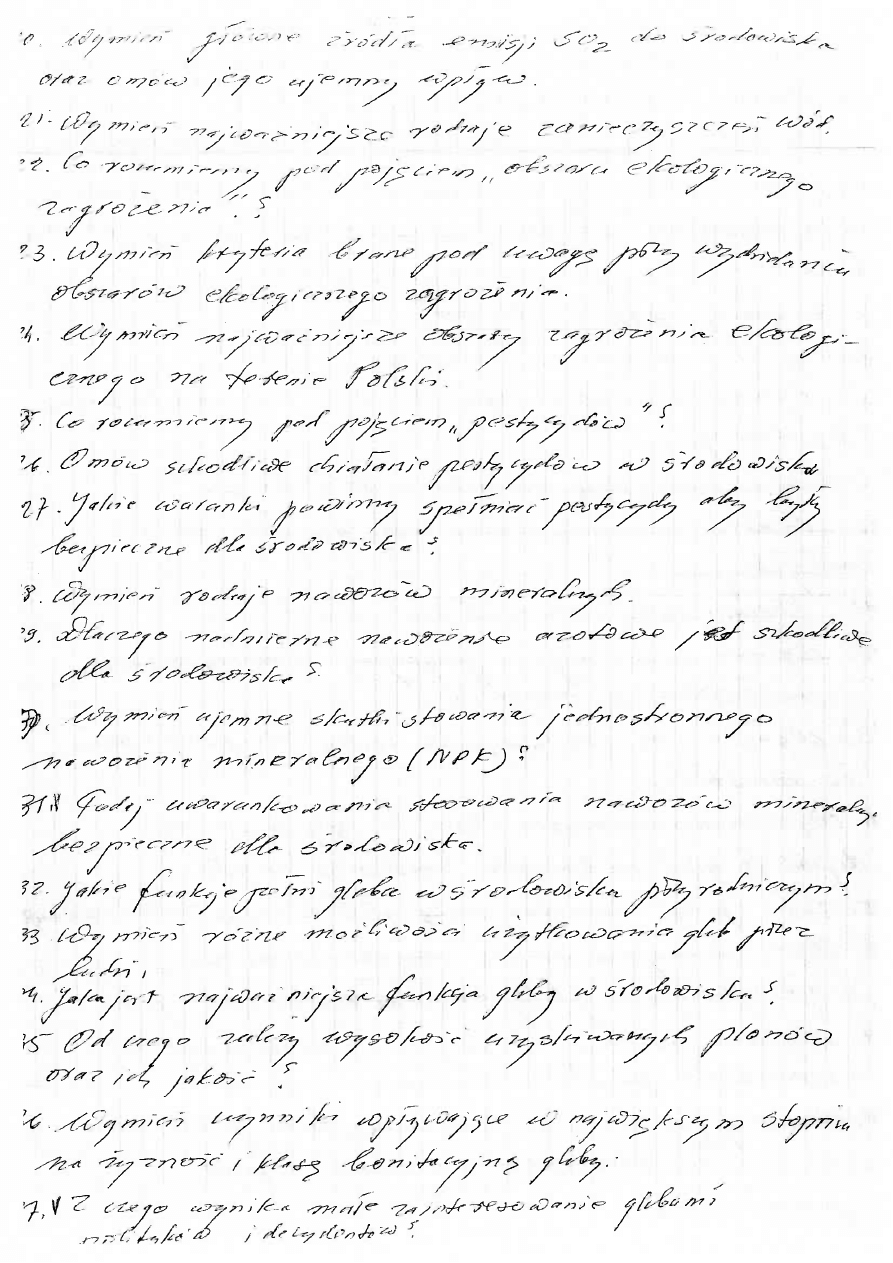 0. Wymień główne źródła emisji SO2 do środowiska
oraz omów jego ujemny wpływ.
21. Wymień najważniejsze rodzaje zanieczyszczeń wód.
22. Co rozumiemy pod pojęciem „obszaru ekologicznego
zagrożenia"?
23. Wymień kryteria brane pod uwagę przy wydzielaniu
obszarów ekologicznego zagrożenia.
24. Wymień najważniejsze obszary zagrożenia ekologi-
cznego na terenie Polski.
25. Co rozumiemy pod pojęciem „pestycydów"?
26. Omów szkodliwe działanie pestycydów w środowisku
27. Jakie warunki powinny spełniać pestycydy aby były
bezpieczne dla środowiska?
8. Wymień rodzaje nawozów mineralnych.
29. Dlaczego nadmierne nawożenie azotowe jest szkodliwe
dla środowiska?
30. Wymień ujemne skutki stowania jednostronnego
nawożenia mineralnego (NPK)?
31. Podaj uwarunkowania stosowania nawozów mineralny.
bezpieczne dla środowiska.
32. Jakie funkcje pełni gleba w środowisku przyrodniczym?
33 Wymień różne możliwości użytkowania gleb przez
ludzi.
4. Jaka jest najważniejsza funkcja gleby w środowisku?
35 Od czego zależy wysokość uzyskiwanych plonów
oraz ich jakość?
6. Wymień czynniki wpływające w największym stopniu
na żyzność i klasę bonitacyjną gleby.
7. V Z czego wynika małe zainteresowanie glebami
polityków i decydentów?